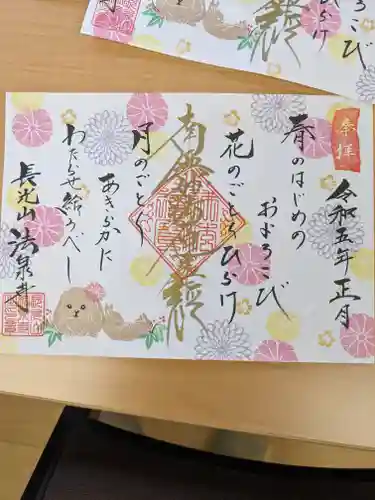 ひらけ
こび
奉拝
令和五年正月
春のはじめの
およろこび
花のごとくひらけ
南無
月のごとく
あきらかに
わたらせ給うべし
長光山 法泉寺